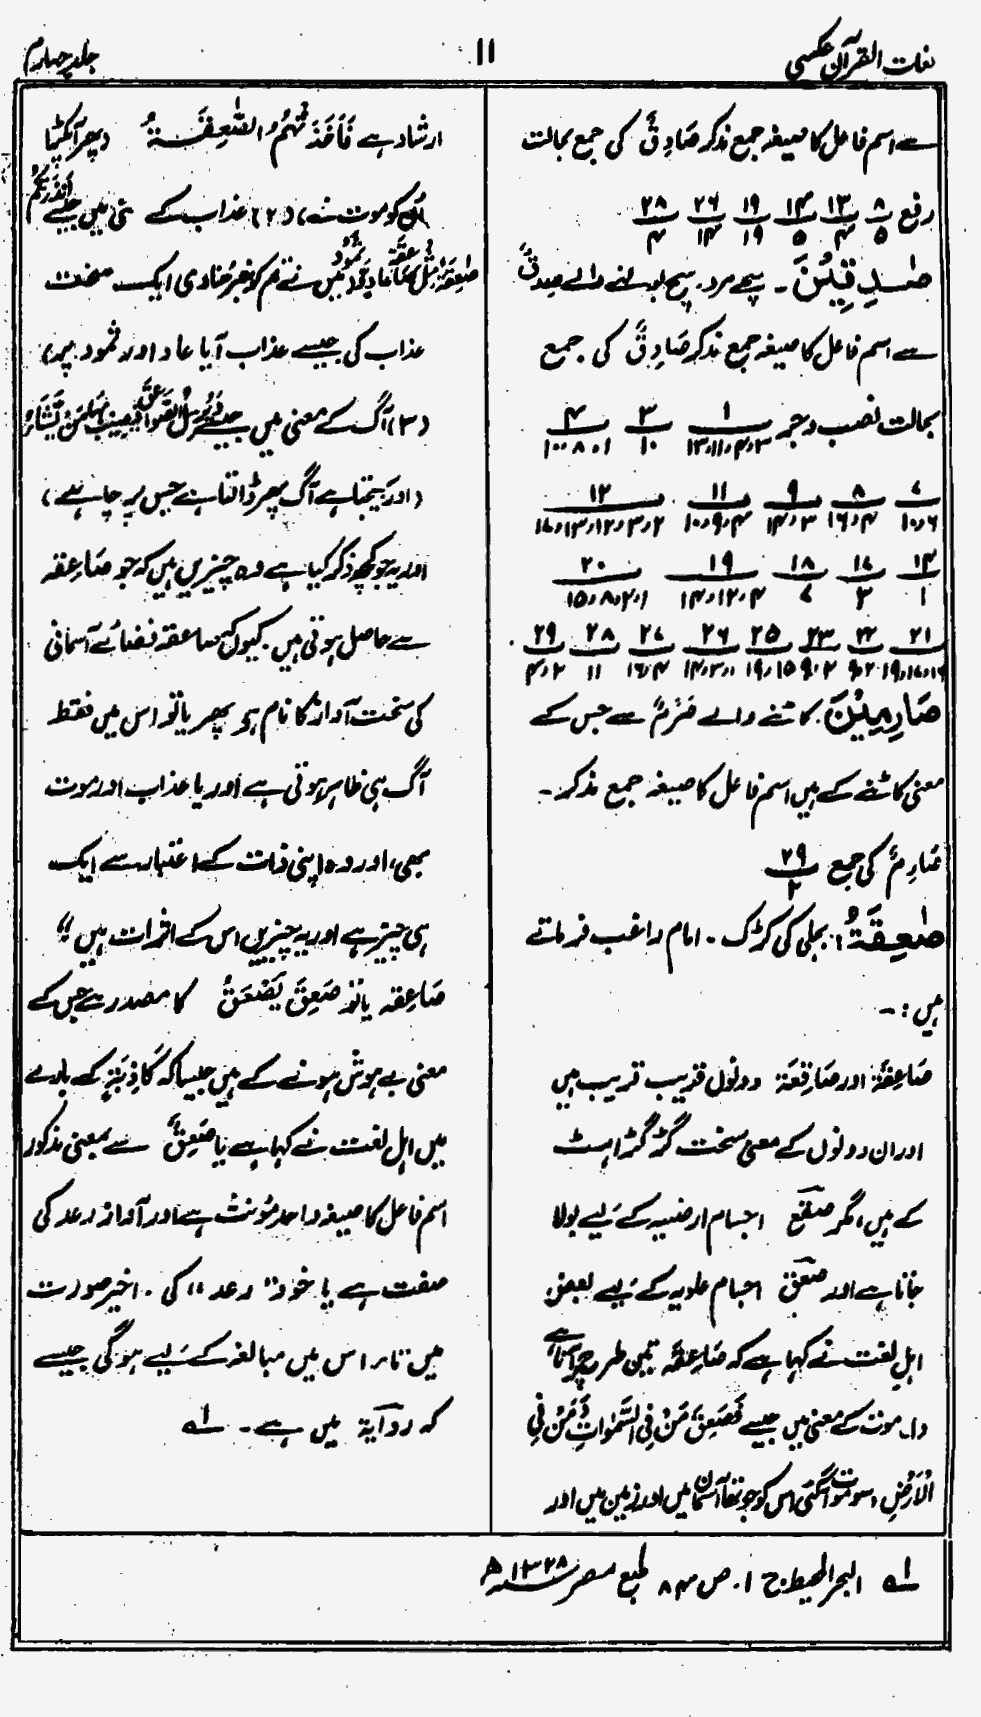 لغات القرآن عکسی
۱۱
جلد چہارم
سے اسم فاعل کا صیغہ جمع مذکر صَادِقٌ کی جمع بحالت
رفع ۸/۵ ۱۲/۴ ۱۴/۵ ۱۹/۱۹ ۲۶/۱۴ ۲۸/۴
صٰدِقِیْنَ ۔ سچے مرد۔ سچ بولنے والے صِدقٌ
سے اسم فاعل کا صیغہ جمع مذکر صَادِقٌ کی جمع
بحالت نصب وجر ۱/۳،۴،۱۱،۱۳ ۳/۱۰ ۴/۱،۸،۱۰
۷/۶،۱۰ ۸/۴،۱۶ ۹/۳،۱۴ ۱۱/۴،۹،۱۰ ۱۲/۲،۳،۱۲،۱۳،۱۷
۱۴/۱ ۱۷/۳ ۱۸/۷ ۱۹/۴،۱۲،۱۴ ۲۰/۱،۲،۸،۱۵
۲۱/۱۶،۱۷،۱۹ ۲۲/۲،۹ ۲۳/۲،۹ ۲۵/۱۵،۱۹ ۲۶/۱،۳،۱۴ ۲۷/۴،۱۶ ۲۸/۱۱ ۲۹/۲،۴
صَارِمِیْنَ۔ کاٹنے والے صَرْمٌ سے جس کے
معنی کاٹنے کے ہیں اسم فاعل کا صیغہ جمع مذکر۔
صَارِمٌ کی جمع ۲۹/۲
صٰعِقَۃُ: بجلی کی کڑک۔ امام راغب فرماتے
ہیں :۔
صَاعِقَۃ اور صَاقِعَۃ دونوں قریب قریب ہیں
اور ان دونوں کے معنی سخت گڑگڑاہٹ
کے ہیں، مگر صقع اجسام ارضیہ کے لیے بولا
جاتا ہے اور صعق اجسام علویہ کے لیے بعض
اہل لغت نے کہا ہے کہ صَاعِقَہ تین طرح پر آتا ہے
۱۔ موت کے معنی میں جیسے فَصَعِقَ مَنْ فِی السَّمٰوٰاتِ وَمَنْ فِی
الْاَرْضِ، سو موت آگئی اس کو جو تھا آسمان میں اور زمین میں اور
ارشاد ہے فَاَخَذَتْہُمُ الصّٰعِقَۃُ (پھر آ پکڑا
اُن کو موت نے)، (۲) عذاب کے معنی میں جیسے اَنْذَرْتُکُمْ
صٰعِقَۃً مِّثْلَ صٰعِقَۃِ عَادٍ وَّثَمُوْدَ میں نے تم کو خبر سنا دی ایک سخت
عذاب کی جیسے عذاب آیا عاد اور ثمود پر)
(۳) آگ کے معنی میں جیسے وَیُرْسِلُ الصَّوَاعِقَ فَیُصِیْبُ بِہَا مَنْ یَّشَآءُ
(اور بھیجتا ہے آگ پھر ڈالتا ہے جس پر چاہے)
اور یہ جو کچھ ذکر کیا ہے وہ چیزیں ہیں کہ جو صَاعِقہ
سے حاصل ہوتی ہیں۔ کیوں کہ صاعقہ فضائے آسمانی
کی سخت آواز کا نام ہے پھر یا تو اس میں فقط
آگ ہی ظاہر ہوتی ہے اور یا عذاب اور موت
بھی، اور وہ اپنی ذات کے اعتبار سے ایک
ہی چیز ہے اور یہ چیزیں اس کے اثرات ہیں ‘‘
صَاعِقہ یا تو صَعِقَ یَصْعَقُ کا مصدر ہے جس کے
معنی بے ہوش ہونے کے ہیں جیسا کہ کَاذِبَۃ کے بارے
میں اہل لغت نے کہا ہے یا صَعِقٌ سے بمعنی مذکور
اسم فاعل کا صیغہ واحد مؤنث ہے اور آواز رعد کی
صفت ہے یا خود ’’رعد‘‘ کی ۔ اخیر صورت
میں تاء اس میں مبالغہ کے لیے ہوگی جیسے
کہ روآیۃ میں ہے۔ لہ
لہ البحر المحیط: ج ۱۔ ص ۸۴ طبع مصر ۱۳۲۸ھ